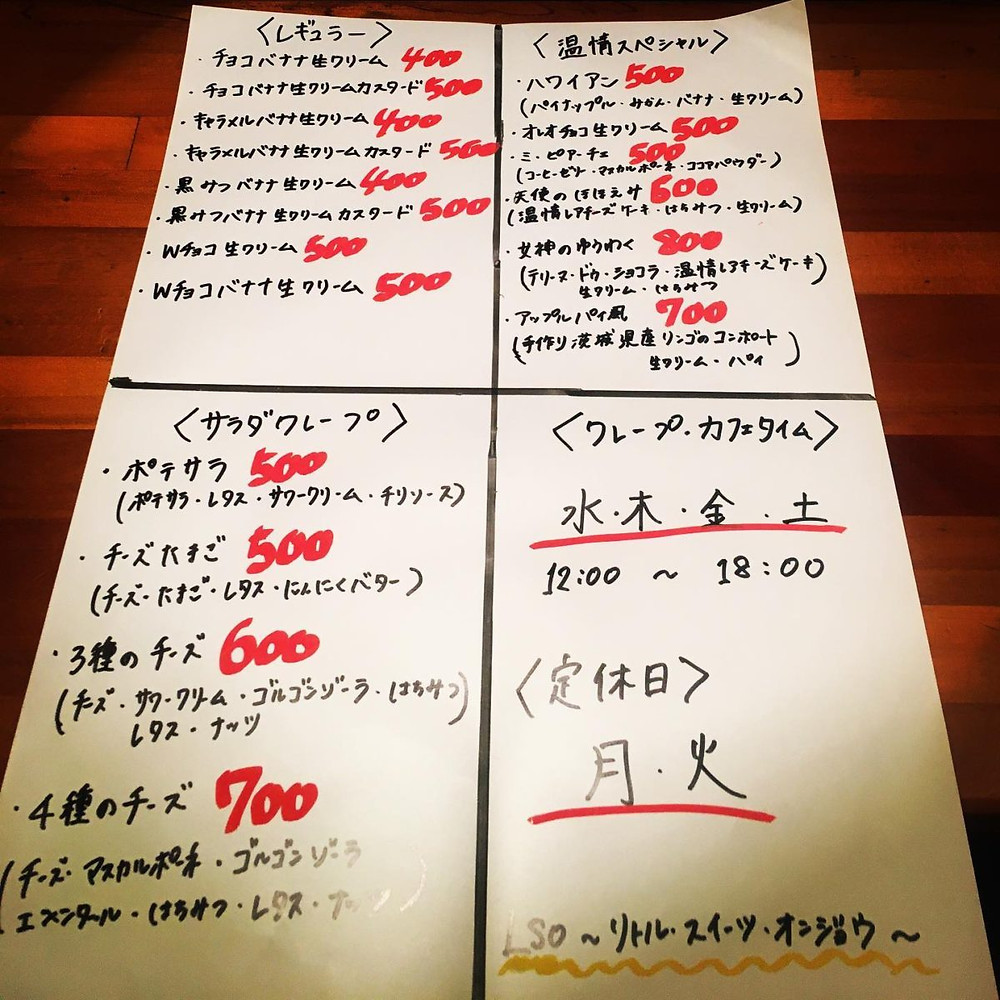 〈レギュラー〉
・チョコバナナ生クリーム 400
・チョコバナナ生クリームカスタード 500
・キャラメルバナナ生クリーム 400
・キャラメルバナナ生クリームカスタード 500
・黒みつバナナ生クリーム 400
・黒みつバナナ生クリームカスタード 500
・Wチョコ生クリーム 500
・Wチョコバナナ生クリーム 500
〈温情スペシャル〉
・ハワイアン 500
(パイナップル・みかん・バナナ・生クリーム)
・オレオチョコ生クリーム 500
・ミ・ピアーチェ 500
(コーヒーゼリー・マスカルポーネ・ココアパウダー)
・天使のほほえみ 600
(温情レアチーズケーキ・はちみつ・生クリーム)
・女神のゆうわく 800
(テリーヌ・ドゥ・ショコラ・温情レアチーズケーキ
生クリーム・はちみつ)
・アップルパイ風 700
(手作り茨城県産リンゴのコンポート
生クリーム・パイ)
〈サラダクレープ〉
・ポテサラ 500
(ポテサラ・レタス・サワークリーム・チリソース)
・チーズたまご 500
(チーズ・たまご・レタス・にんにくバター)
・3種のチーズ 600
(チーズ・サワークリーム・ゴルゴンゾーラ・はちみつ
レタス・ナッツ)
・4種のチーズ 700
(チーズ・マスカルポーネ・ゴルゴンゾーラ
エメンタール・はちみつ・レタス・ナッツ)
〈クレープ・カフェタイム〉
水・木・金・土
12:00 ～ 18:00
〈定休日〉
月・火
LSO ～リトル・スイーツ・オンジョウ～